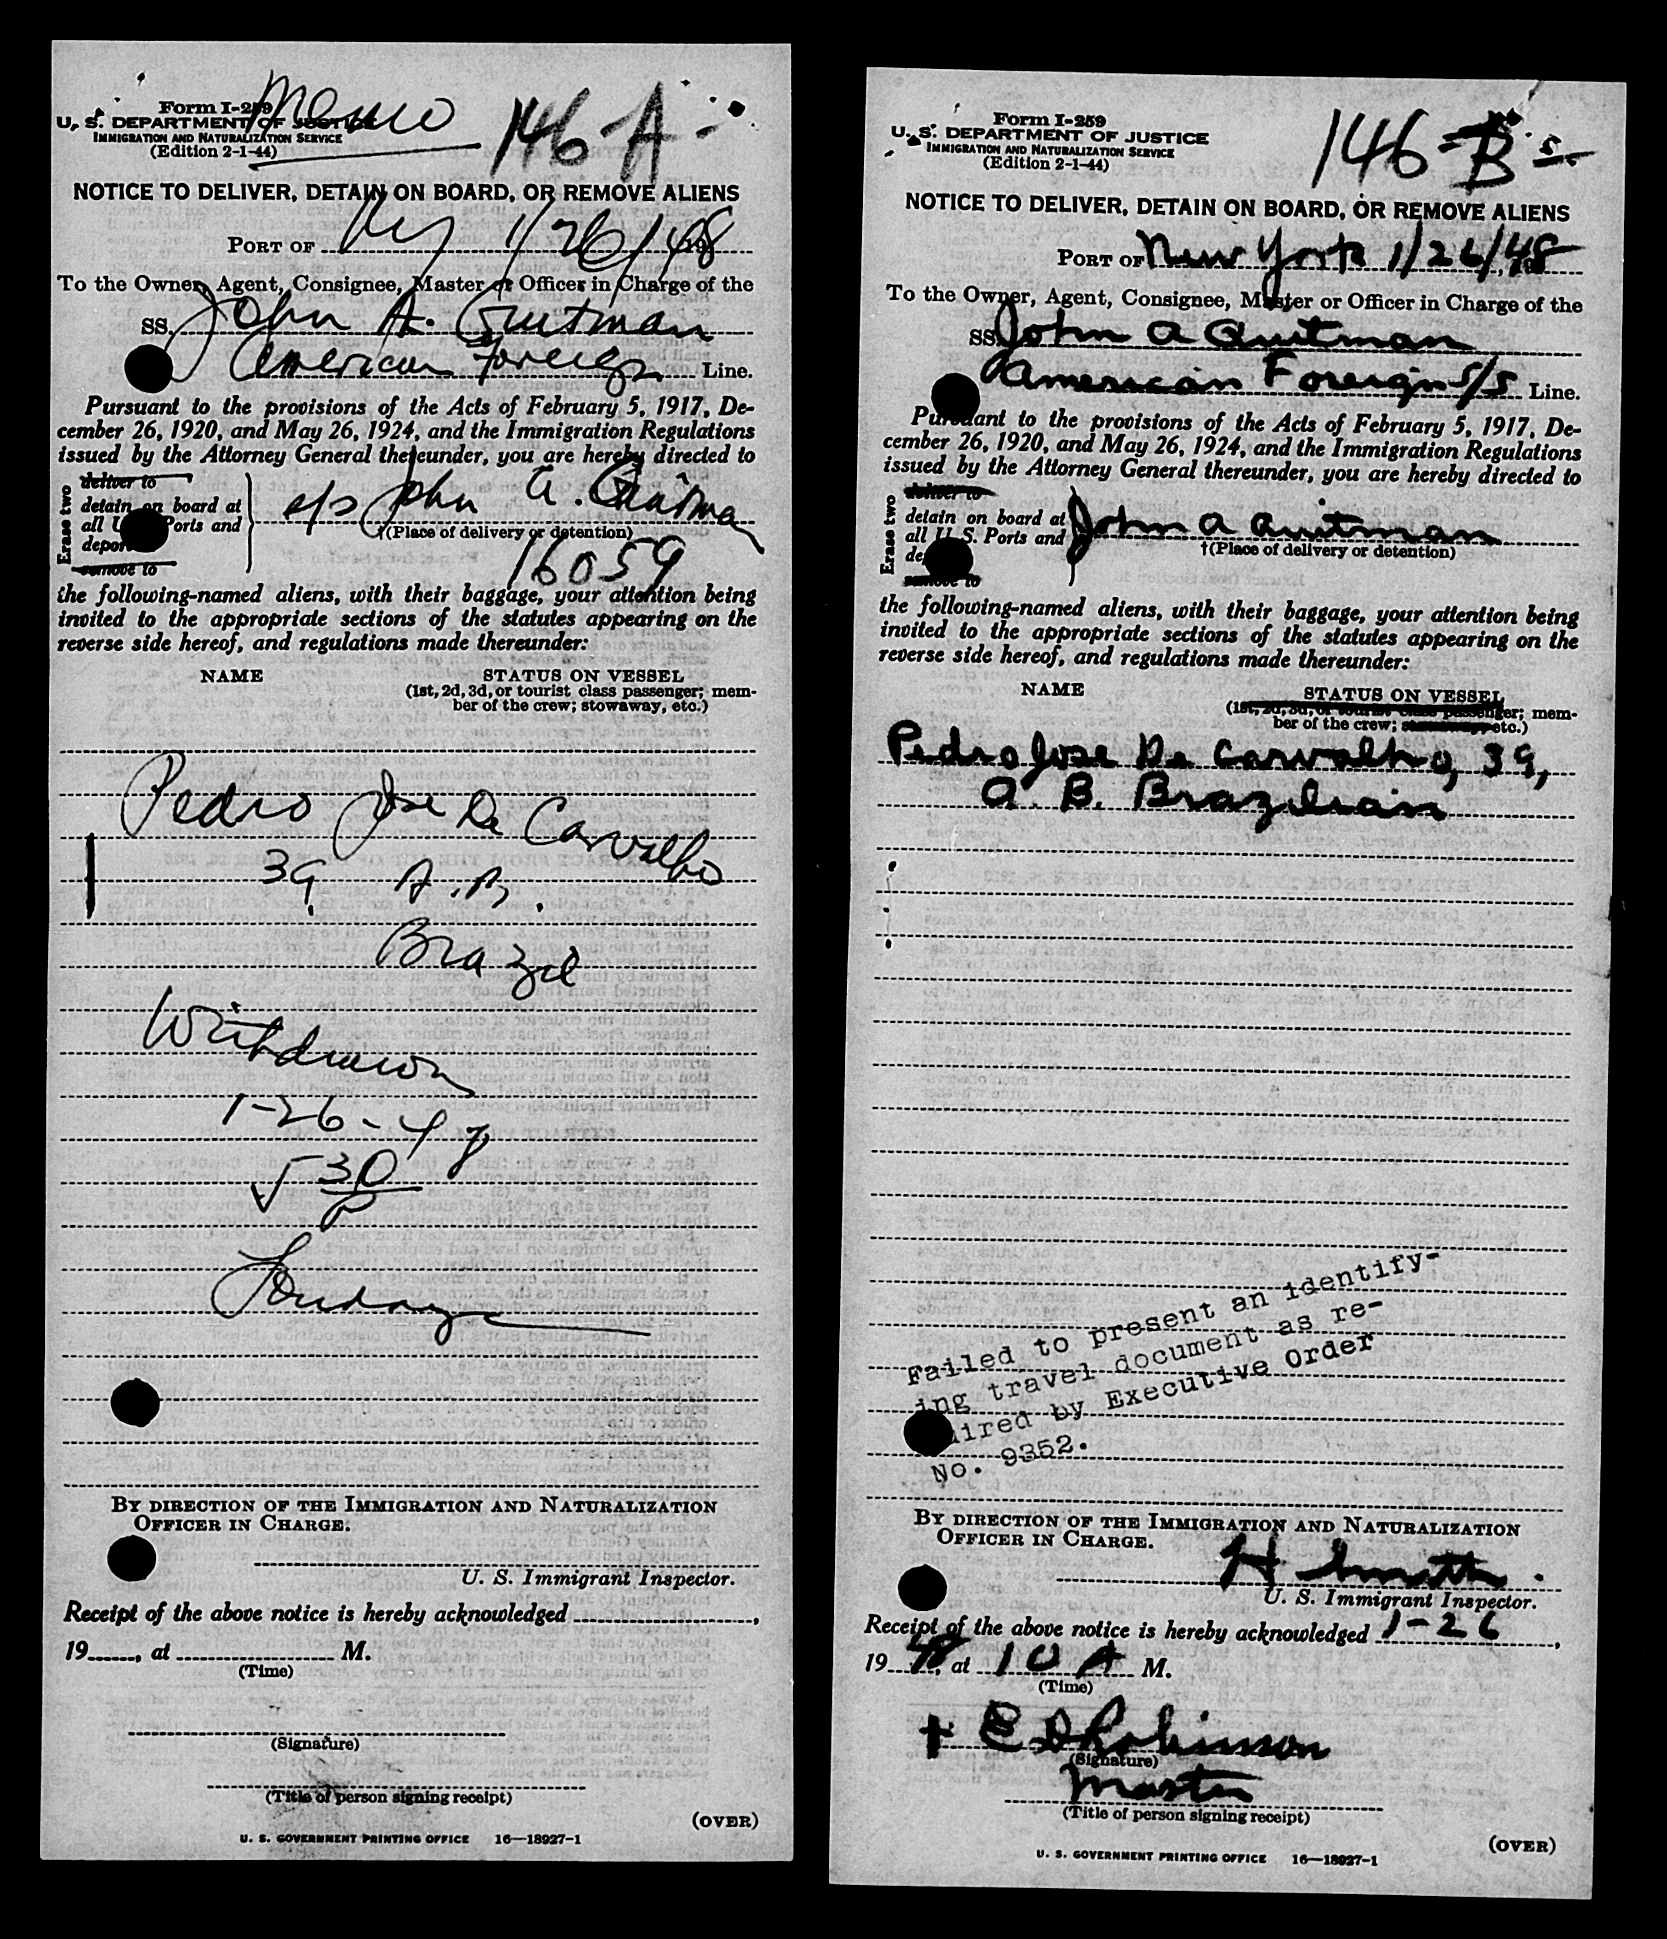 Form I-259
Memo
146-A
U. S. DEPARTMENT OF JUSTICE
IMMIGRATION AND NATURALIZATION SERVICE
(Edition 2-1-44)
NOTICE TO DELIVER, DETAIN ON BOARD, OR REMOVE ALIENS
PORT OF NY 1/26/48
To the Owner, Agent, Consignee, Master or Officer in Charge of the
SS. John A. Quitman
American Foreign Line.
Pursuant to the provisions of the Acts of February 5, 1917, De-
cember 26, 1920, and May 26, 1924, and the Immigration Regulations
issued by the Attorney General thereunder, you are hereby directed to
Erase two
deliver to
detain on board at
all U. Ports and
deport
remove to
s/s John A. Quitman
†(Place of delivery or detention)
16059
the following-named aliens, with their baggage, your attention being
invited to the appropriate sections of the statutes appearing on the
reverse side hereof, and regulations made thereunder:
NAME STATUS ON VESSEL
(1st, 2d, 3d, or tourist class passenger; mem-
ber of the crew; stowaway, etc.)
Pedro Jose De Carvalho
39, A.B.
Brazil
Withdrawn
1-26-48
√ 30
P
BY DIRECTION OF THE IMMIGRATION AND NATURALIZATION
OFFICER IN CHARGE.
U. S. Immigrant Inspector.
Receipt of the above notice is hereby acknowledged ,
19 , at M.
(Time)
(Signature)
(Title of person signing receipt)
(OVER)
U. S. GOVERNMENT PRINTING OFFICE 16—18927-1
Form I-259
146-B
U. S. DEPARTMENT OF JUSTICE
IMMIGRATION AND NATURALIZATION SERVICE
(Edition 2-1-44)
NOTICE TO DELIVER, DETAIN ON BOARD, OR REMOVE ALIENS
PORT OF New York 1/26/48
To the Owner, Agent, Consignee, Master or Officer in Charge of the
SS. John A Quitman
American Foreign S/S Line.
Pursuant to the provisions of the Acts of February 5, 1917, De-
cember 26, 1920, and May 26, 1924, and the Immigration Regulations
issued by the Attorney General thereunder, you are hereby directed to
Erase two
deliver to
detain on board at
all U. S. Ports and
de
remove to
John A Quitman
†(Place of delivery or detention)
the following-named aliens, with their baggage, your attention being
invited to the appropriate sections of the statutes appearing on the
reverse side hereof, and regulations made thereunder:
NAME STATUS ON VESSEL
(1st, 2d, 3d, or tourist class passenger; mem-
ber of the crew; stowaway, etc.)
Pedro Jose De Carvalho, 39,
A. B. Brazilian
Failed to present an identify-
ing travel document as re-
quired by Executive Order
No. 9352.
BY DIRECTION OF THE IMMIGRATION AND NATURALIZATION
OFFICER IN CHARGE.
H Smith
U. S. Immigrant Inspector.
Receipt of the above notice is hereby acknowledged 1-26,
1948, at 10 A M.
(Time)
+ E D Robinson
(Signature)
Master
(Title of person signing receipt)
(OVER)
U. S. GOVERNMENT PRINTING OFFICE 16—18927-1